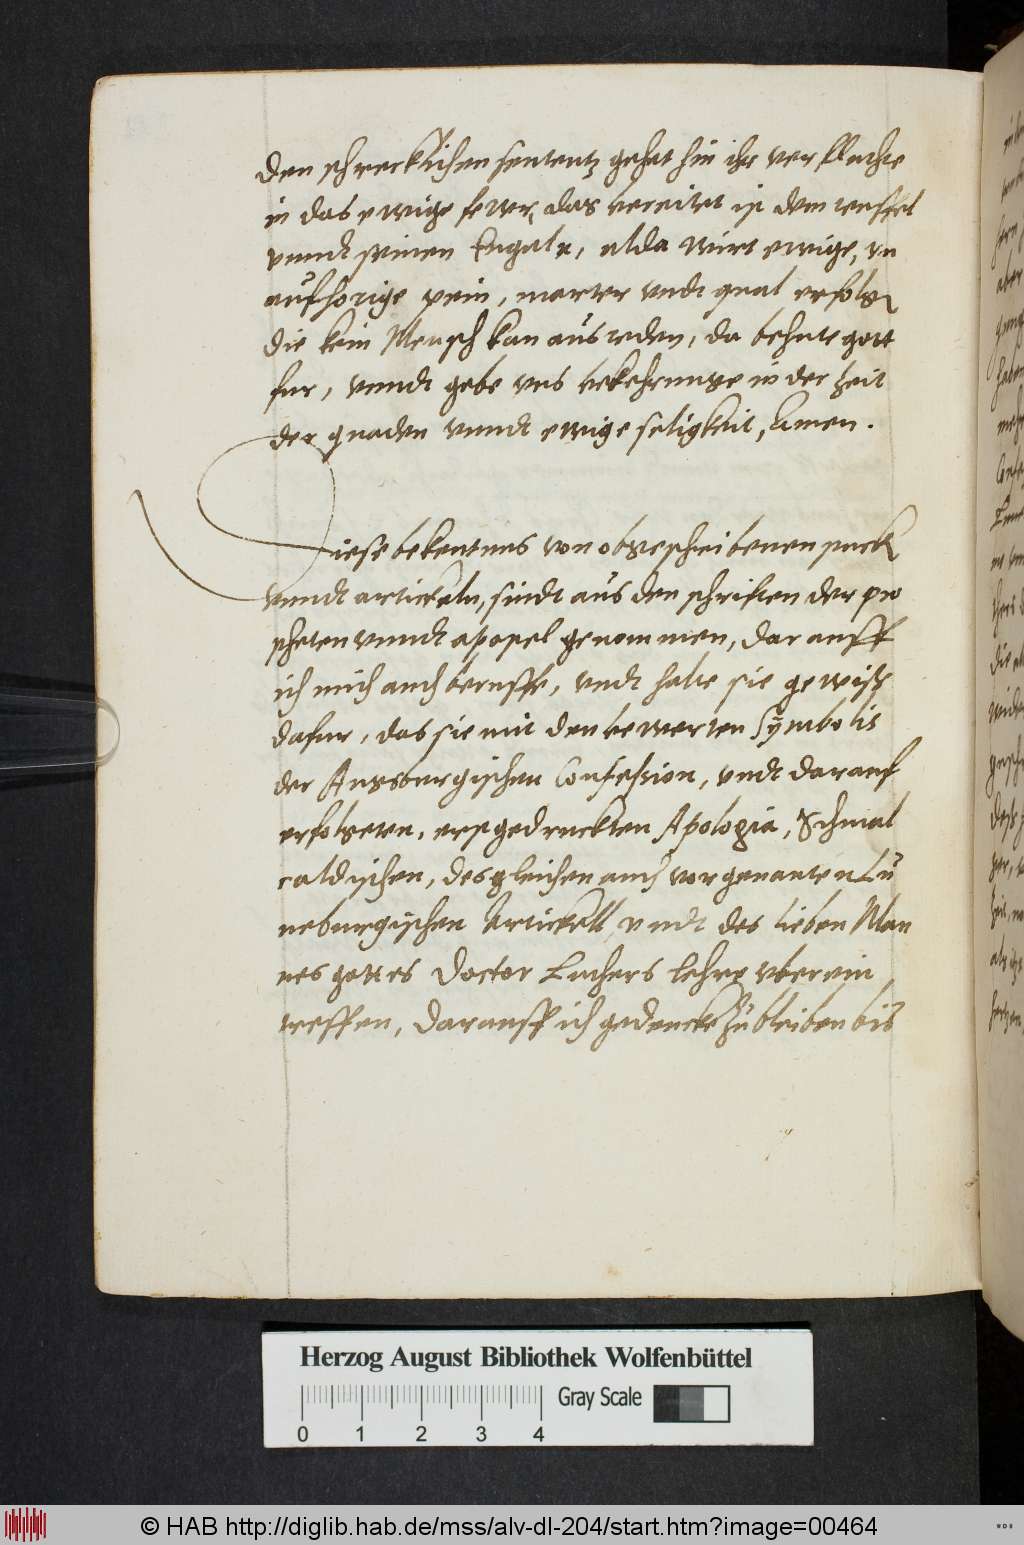 den schrecklichen sententz gehet hin ihr verfluchte
in das ewige fewr, das bereitet ist dem teuffel
vnndt seinen Engaln, alda wirt ewige, vn
aufhorige pein, marter vndt qual erfolgen
die kein Mensch kan ausreden, da behute gott
fur, vnndt gebe vns bekehrunge in der Zeit
der gnaden vnndt ewige seligkeit, Amen.
Diese bekentnus von obgeschreibenen puncten
vnndt artickeln, sindt aus den schriften der pro
pheten vnndt apostel genommen, darauff
ich mich auch beruffe, vndt halte sie gewiss
dafur, das sie mit den bewerten Symbolis
der Augsburgischen Confession, vndt darauf
erfolgeten, erstgedruckten Apologia, Schmal
caldischen, desgleichen auch vorgenanten Lu
neburgischen Artickell, vndt des lieben Man
nes gottes Doctor Luthers lehre vberein
treffen, darauff ich gedencke zu bleiben bis
Herzog August Bibliothek Wolfenbüttel
Gray Scale
0 1 2 3 4
© HAB http://diglib.hab.de/mss/alv-dl-204/start.htm?image=00464